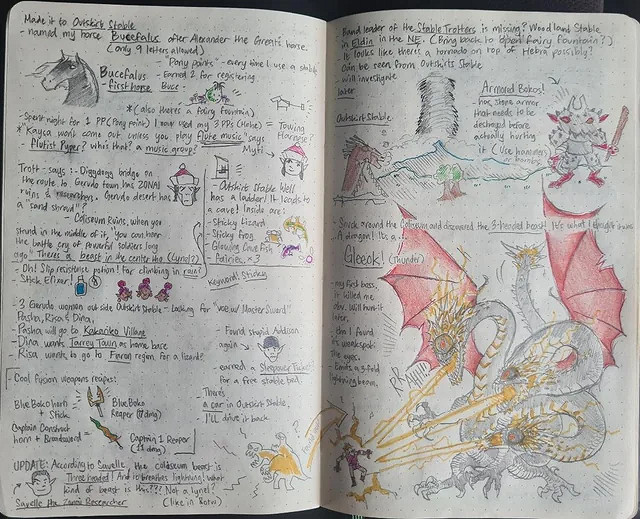 Made it to Outskirt Stable
- named my horse Bucefalus after Alexander the Great's horse.
(only 9 letters allowed)
"Pony points" - every time I use a stable
Bucefalus - Earned 2 for registering
first horse Buce
* (also there's a fairy fountain)
- Spent night for 1 PP (Pony point) I can use my 3 PPs = Towing Harness?
* Kaysa won't come out unless you play flute music" says
- Flutist Pyper? Who's that? a music group?
Mytt
Trott says: - Digdogg bridge on
the route to Gerudo town has ZONAI
ruins & researchers. Gerudo desert has
a "sand shroud"?
- Coliseum Ruins, when you
stand in the middle of it, "you can hear
the battle cry of powerful soldiers long
ago" There's a beast in the center tho (Lynel?)
- Oh! Slip resistance potion! for climbing in rain?
- Stick Elixir!
- Outskirt Stable Well
has a ladder! It leads to
a cave! Inside are:
- Sticky Lizard
- Sticky frog
- Glowing Cave fish
- Fairies, x3
Keyword: Sticky
- 3 Gerudo women out side Outskirt Stable - Looking for "voe w/ Master Sword"
Pasha, Risa & Dina,
- Pasha will go to Kakariko Village
- Dina wants Tarrey Town as home base
- Risa wants to go to Faron region for a lizard?
- Found stupid Addison
again
- earned a Sleepover Ticket
for a free stable bed.
- Cool fusion weapons recipes:
Blue Boko horn
+ Stick
= Blue Boko
Reaper (7 dmg)
Captain Construct
horn + Broadsword
= Captain I Reaper
(11 dmg)
There's
a car in Outskirt Stable,
I'll drive it back
UPDATE: According to Savelle the coliseum beast is
Three headed! And it breathes lightning! What
kind of beast is this??! Not a lynel!
(like in Botw)
Savelle the Zonai Researcher
Band leader of the Stable Trotters is missing? Woodland Stable
in Eldin in the NE. (Bring back to open fairy fountain?)
It looks like there's a tornado on top of Hebra possibly?
Can be seen from Outskirts Stable
- will investigate
later
Outskirt Stable
Armored Bokos!
- has stone armor
that needs to be
destroyed before
actually hurting
it (use hammers
- Snuck around the Coliseum and discovered the 3-headed beast! It's what I thought it was
A dragon! It's a...
Gleeok! (Thunder)
- my first boss,
it killed me
obv. Will hunt it
later.
- tho I found
its weakspot:
The eyes.
- Shoots a 3-fold
lightning beam.
RR
AHH!!!